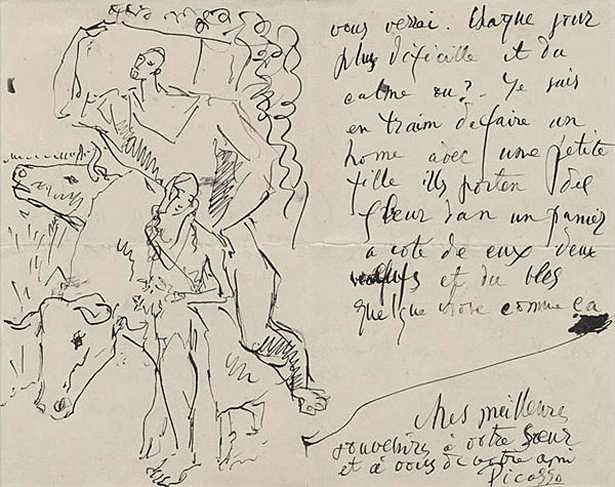 vous verrai. Chaque jour
plus dificille et du
calme ou? Je suis
en traim de faire un
home avec une petite
fille ills porten des
fleur dan un panier
a cote de eux deux
et du bles
quelque chose comme ca
Mes meilleures
souvenirs à votre sœur
et à vous de votre ami
Picasso